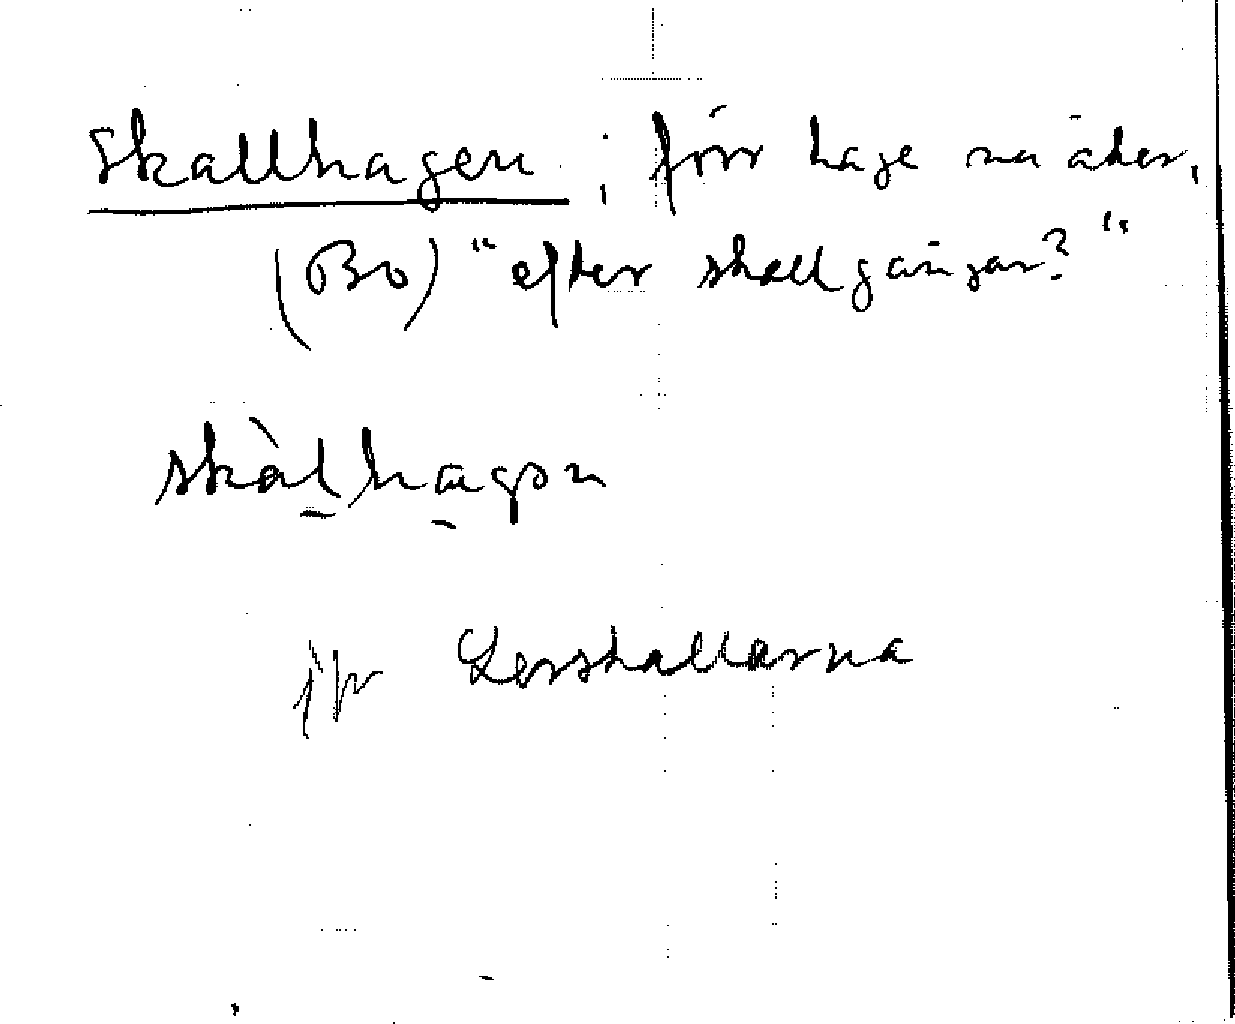 Skallhagen ; förr hage nu åker,
(Bo) "efter skallgångar?"
skàlhagən
jfr Lerskallarna